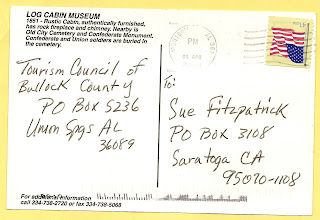 LOG CABIN MUSEUM
1851 - Rustic Cabin, authentically furnished,
has rock fireplace and chimney. Nearby is
Old City Cemetery and Confederate Monument.
Confederate and Union soldiers are buried in
the cemetery.
Tourism Council of
Bullock County
PO Box 5236
Union Spgs AL
36089
For additional information
call 334-738-2720 or 334-738-5068
PM
To:
Sue Fitzpatrick
PO Box 3108
Saratoga CA
95070-1108